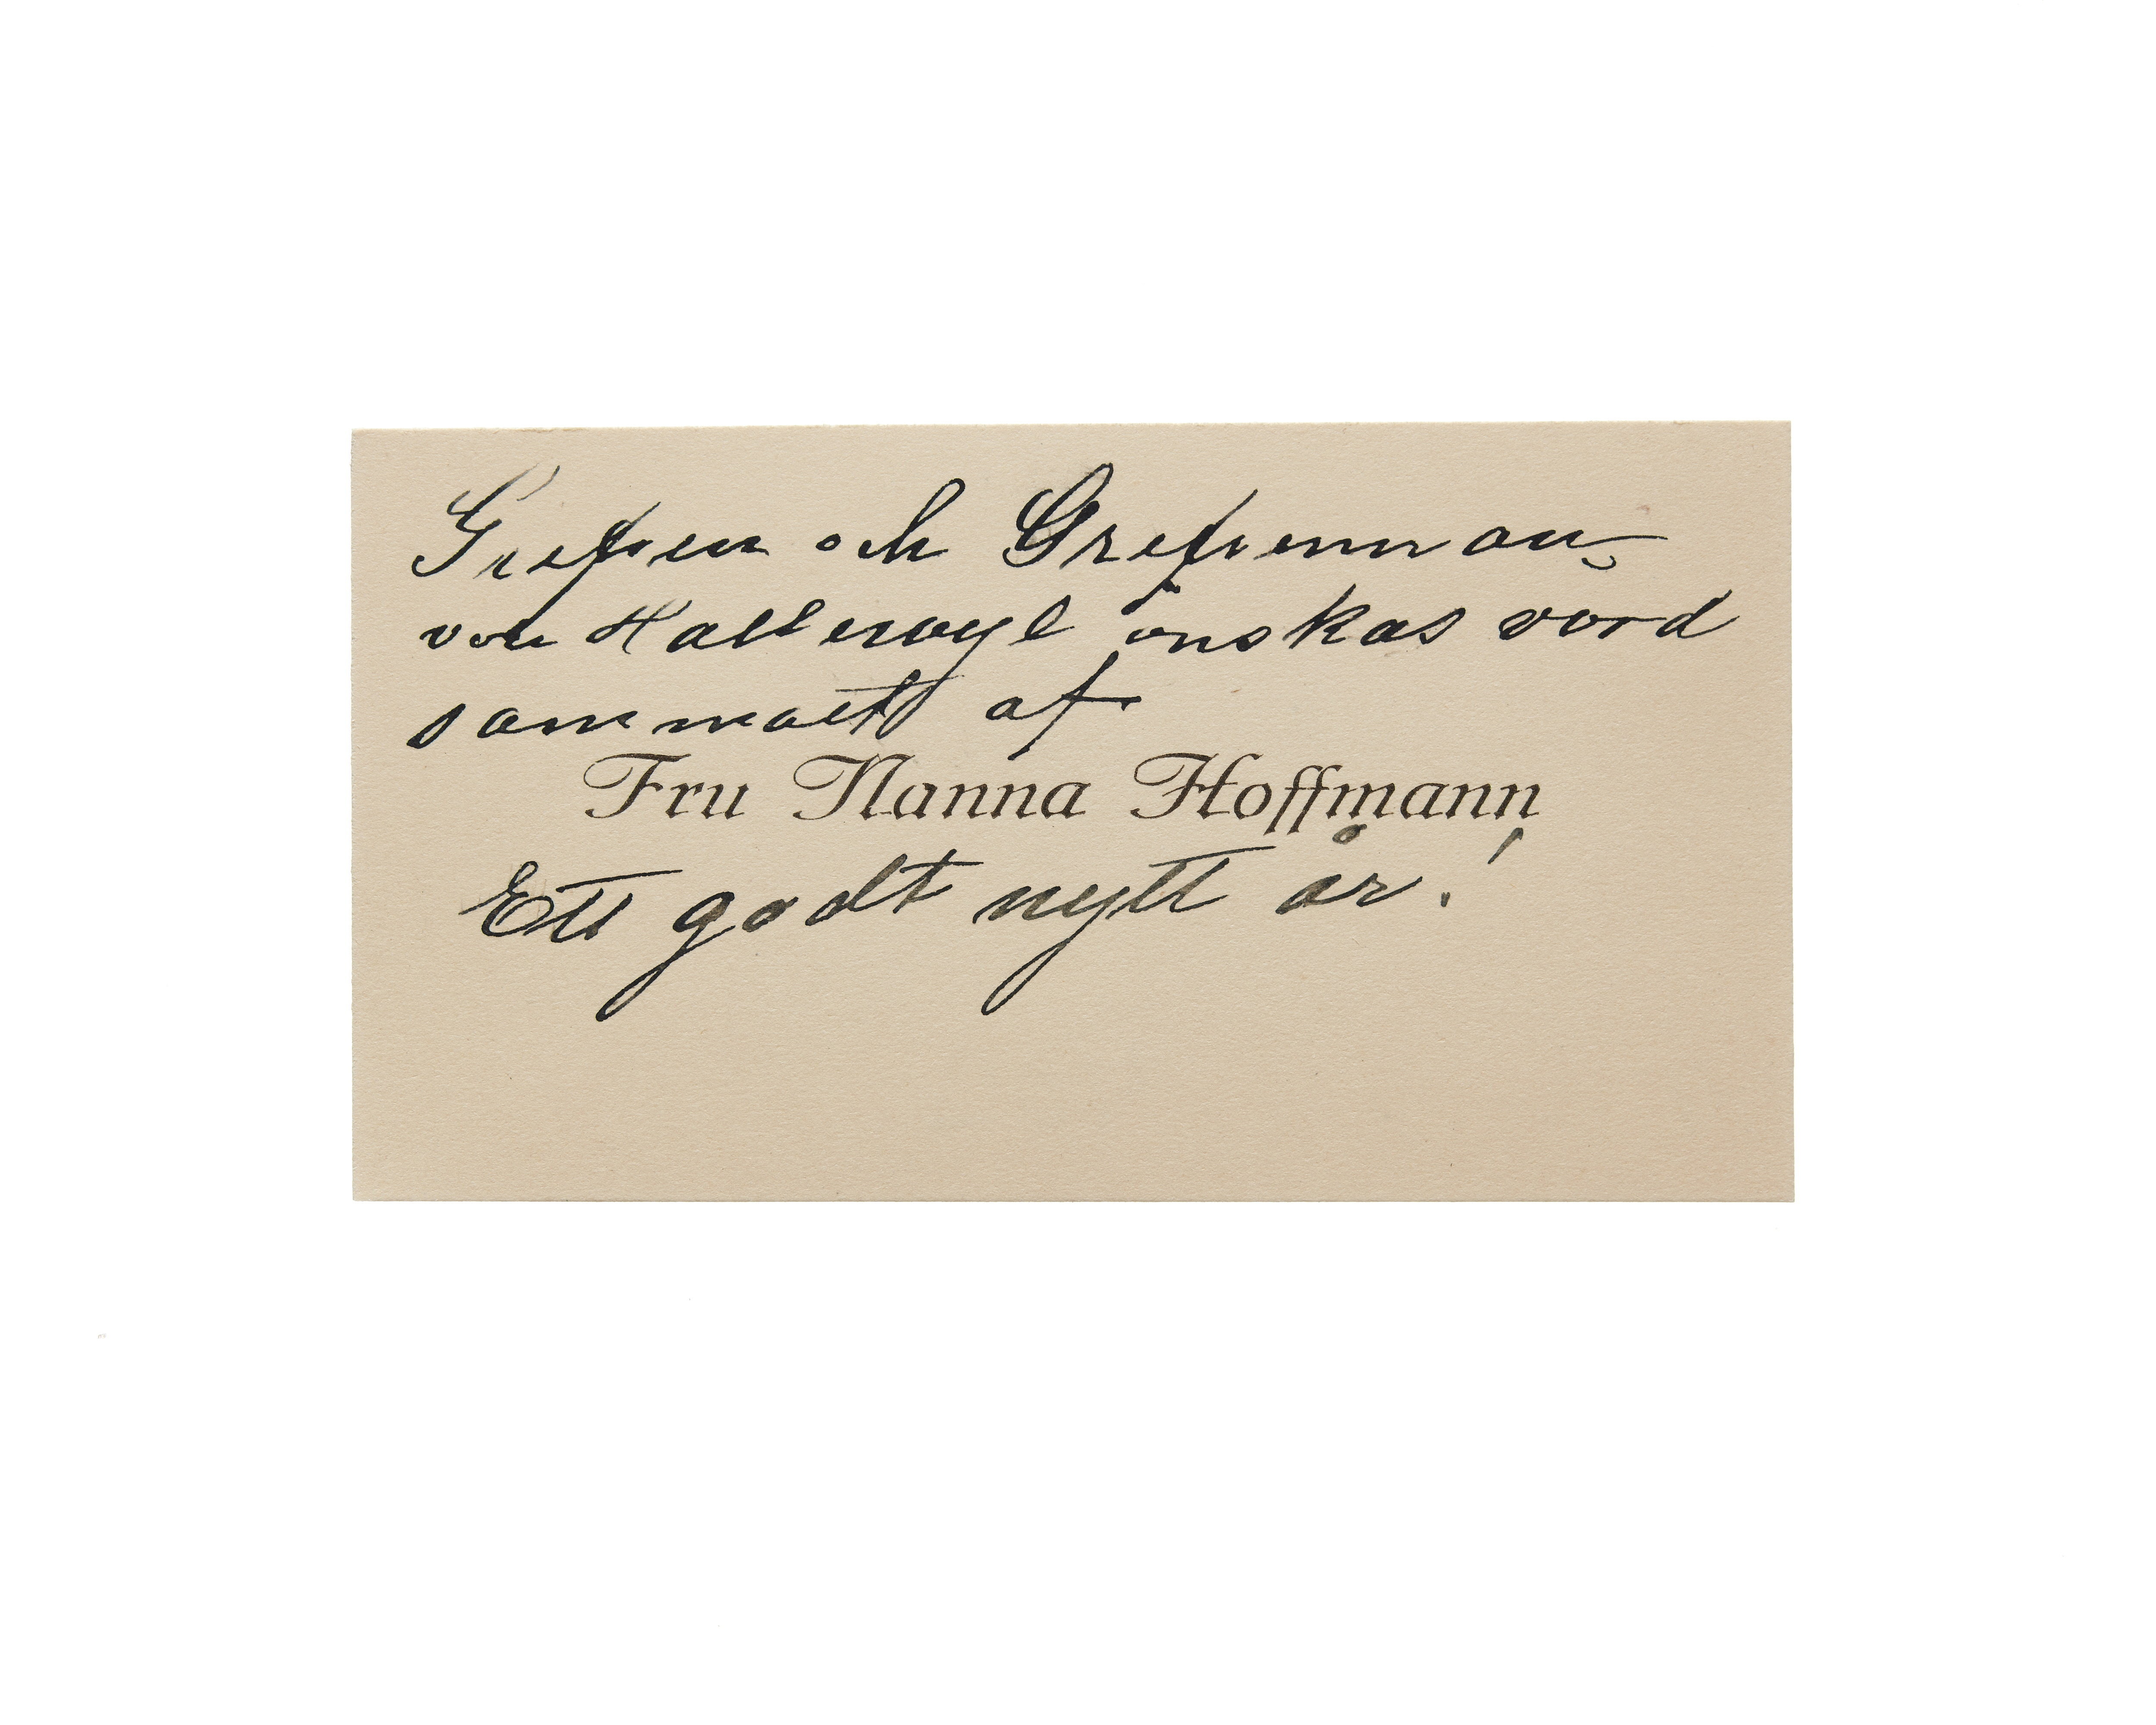 Grefven och Grefvennan
von Hallewyl önskas vörd
sammatt af
Fru Nanna Hoffmann
Ett godt nytt år!